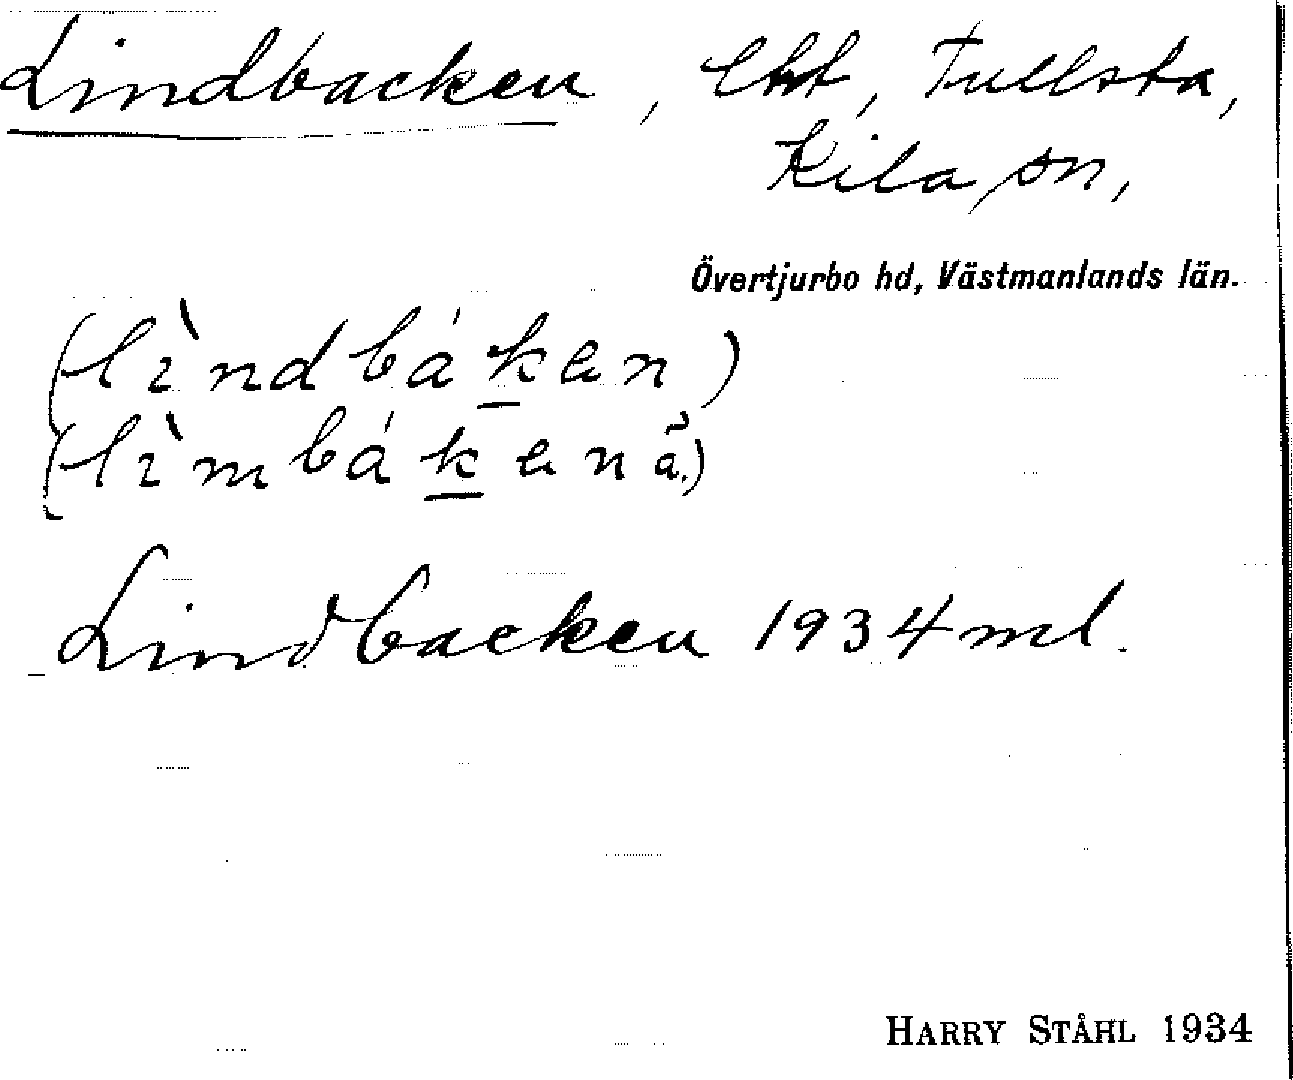 Lindbacken, lht, Tullsta,
Kila sn,
Övertjurbo hd, Västmanlands län.
(lìndbákan)
(lìmbákan ä.)
Lindbacken 1934 ml.
HARRY STÅHL 1934